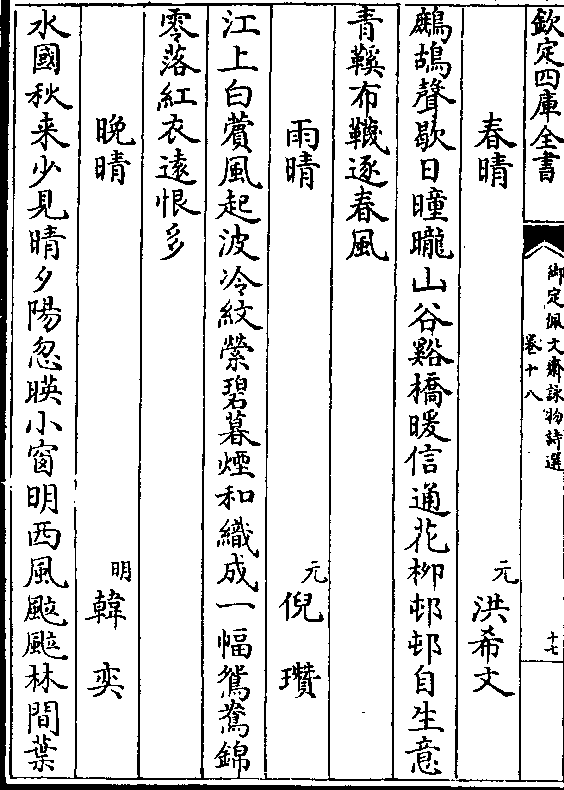 欽定四庫全書
御定佩文齋詠物詩選
卷十八
十七
春晴
元 洪希文
鷓鴣聲歇日曈曨山谷谿橋暖信通花柳邨邨自生意
青鞵布韈逐春風
雨晴
元 倪瓚
江上白蘋風起波冷紋縈碧暮煙和織成一幅鴛鴦錦
零落紅衣遠恨多
晚晴
明 韓奕
水國秋来少見晴夕陽忽暎小窗明西風颭颭林間葉